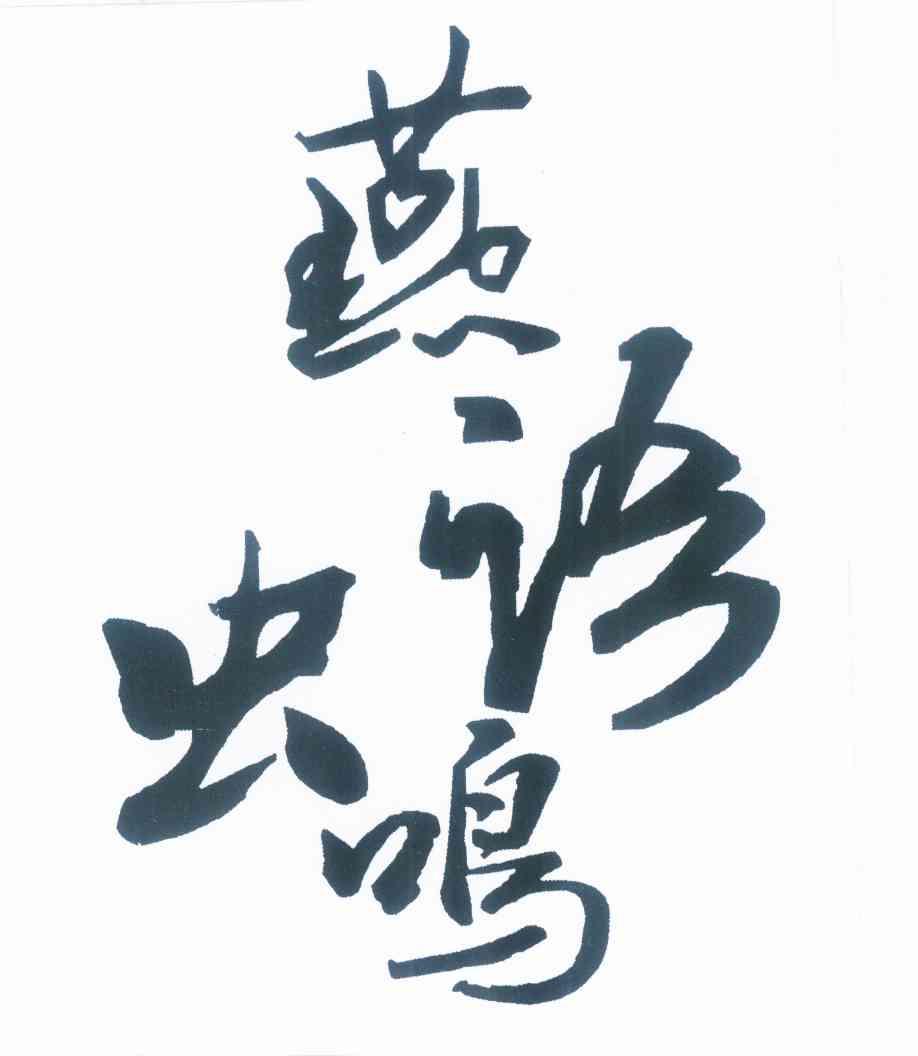 燕语虫鸣